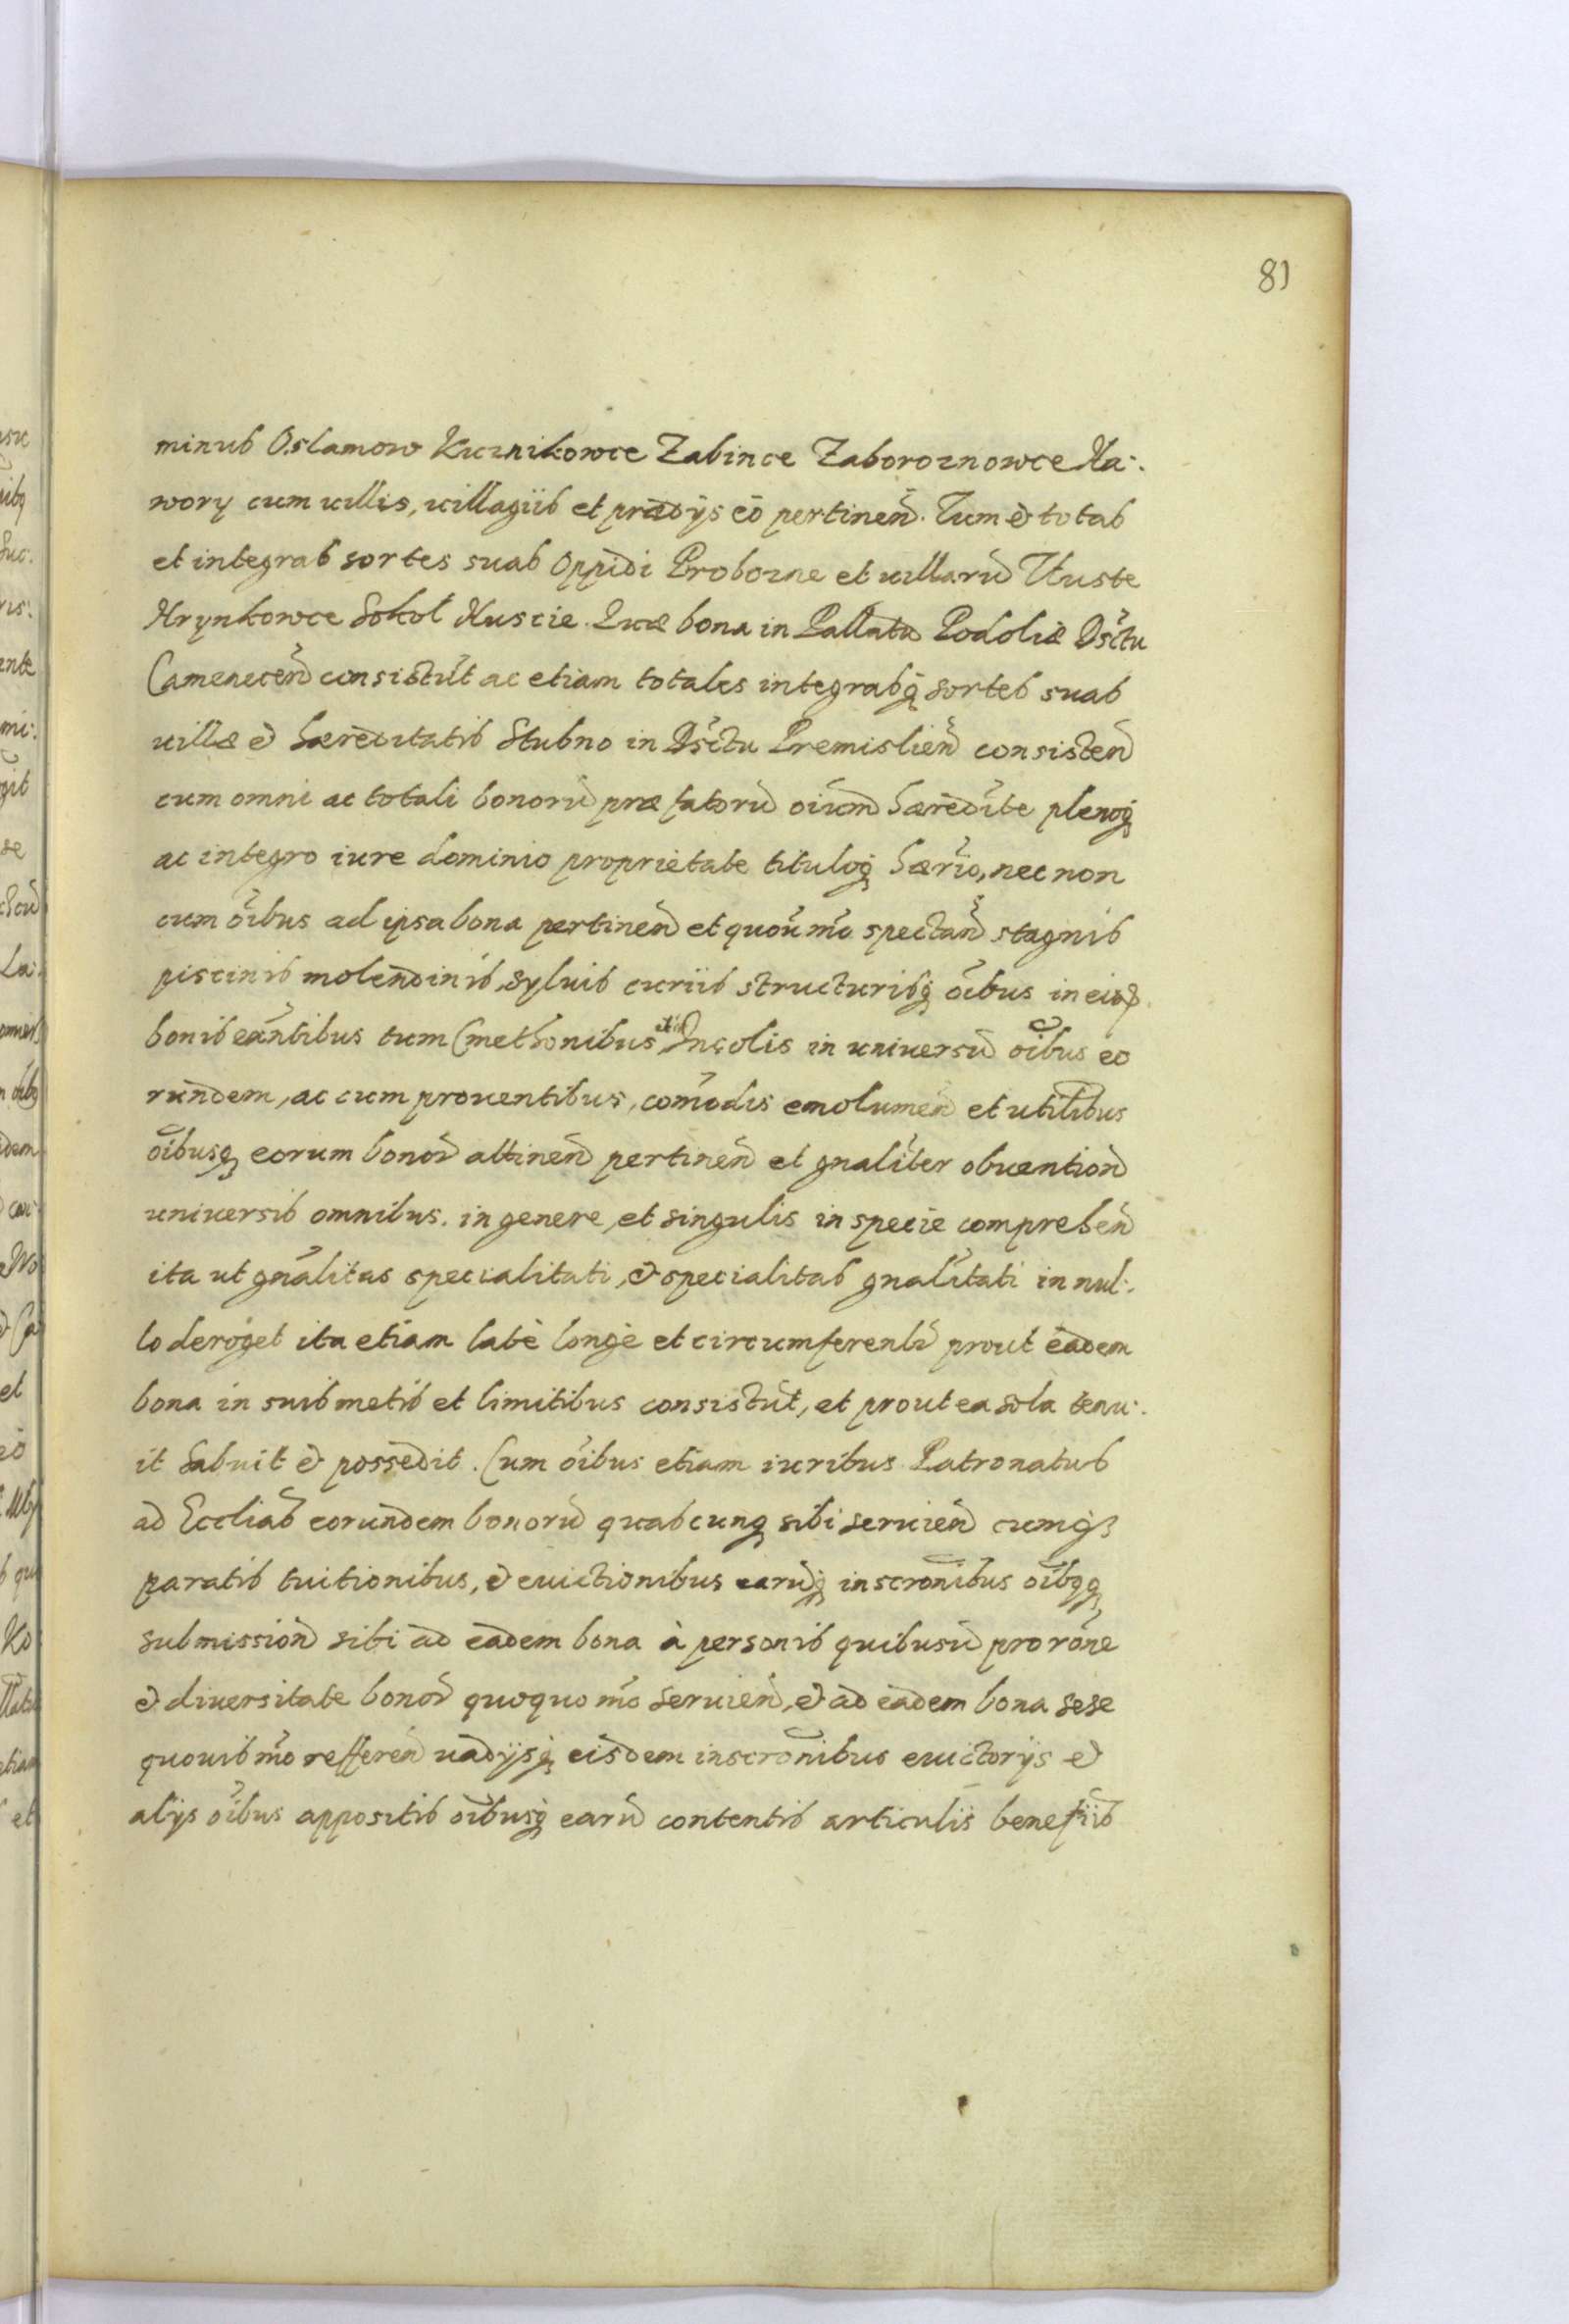 81
minus Oslamow Kuznikowce Zabince Zaboroznowce Ja:
wory cum uillis, uillagiis et prædijs eō pertineñ. Tum & totas
et integras sortes suas Oppidi Probozne et uillarū Tłuste
Hrynkowce Sokoł Kuscie. Quæ bona in Pallatu Podoliæ Dsctu
Cameneceñ consistūt ac etiam totales integrasq̨ sortes suas
uillæ & hæreditatis Stubno in Dsctu Premislieñ consisteñ
cum omni ac totali bonorū præfatorū oīum hæredite plenoq̨
ac integro iure dominio proprietate tituloq̨ hærio, nec non
cum oībus ad ipsa bona pertineñ et quoūmō spectañ stagnis
piscinis molendinis, syluis curiis structurisq̨ oībus in eisd
bonis exāntibus tum Cmethonibus etiā Incolis in uniuersū oībus eo
rundem, ac cum prouentibus, comodis emolumeñ et utilībus
oībusq̨ eorum bonoȓ attineñ pertineñ et gnaliter obuentioñ
uniuersis omnibus. in genere, et singulis in specie compreheñ
ita ut gnālitas specialitati, & specialitas gnalītati in nul:
lo deroget ita etiam latè longè et circumferentr prout eadem
bona in suis metis et limitibus consistūt, et prout ea sola tenu:
it habuit & possedit. Cum oībus etiam iuribus Patronatus
ad Eccliās eorundem bonorū quascunq̨ sibi seruieñ cumq̨
paratis tuitionibus, & euictionibus earūq̨ inscronībus oībqq̨
submissioñ sibi ad eadem bona à personis quibusū pro rōne
& diuersitate bonoȓ quoquo mō seruieñ, & ad eadem bona sese
quouis mō reffereñ uadijsq̨ eisdem inscronībus euictorijs &
alijs oībus appositis oībusq̨ earū contentis articulis benefiis